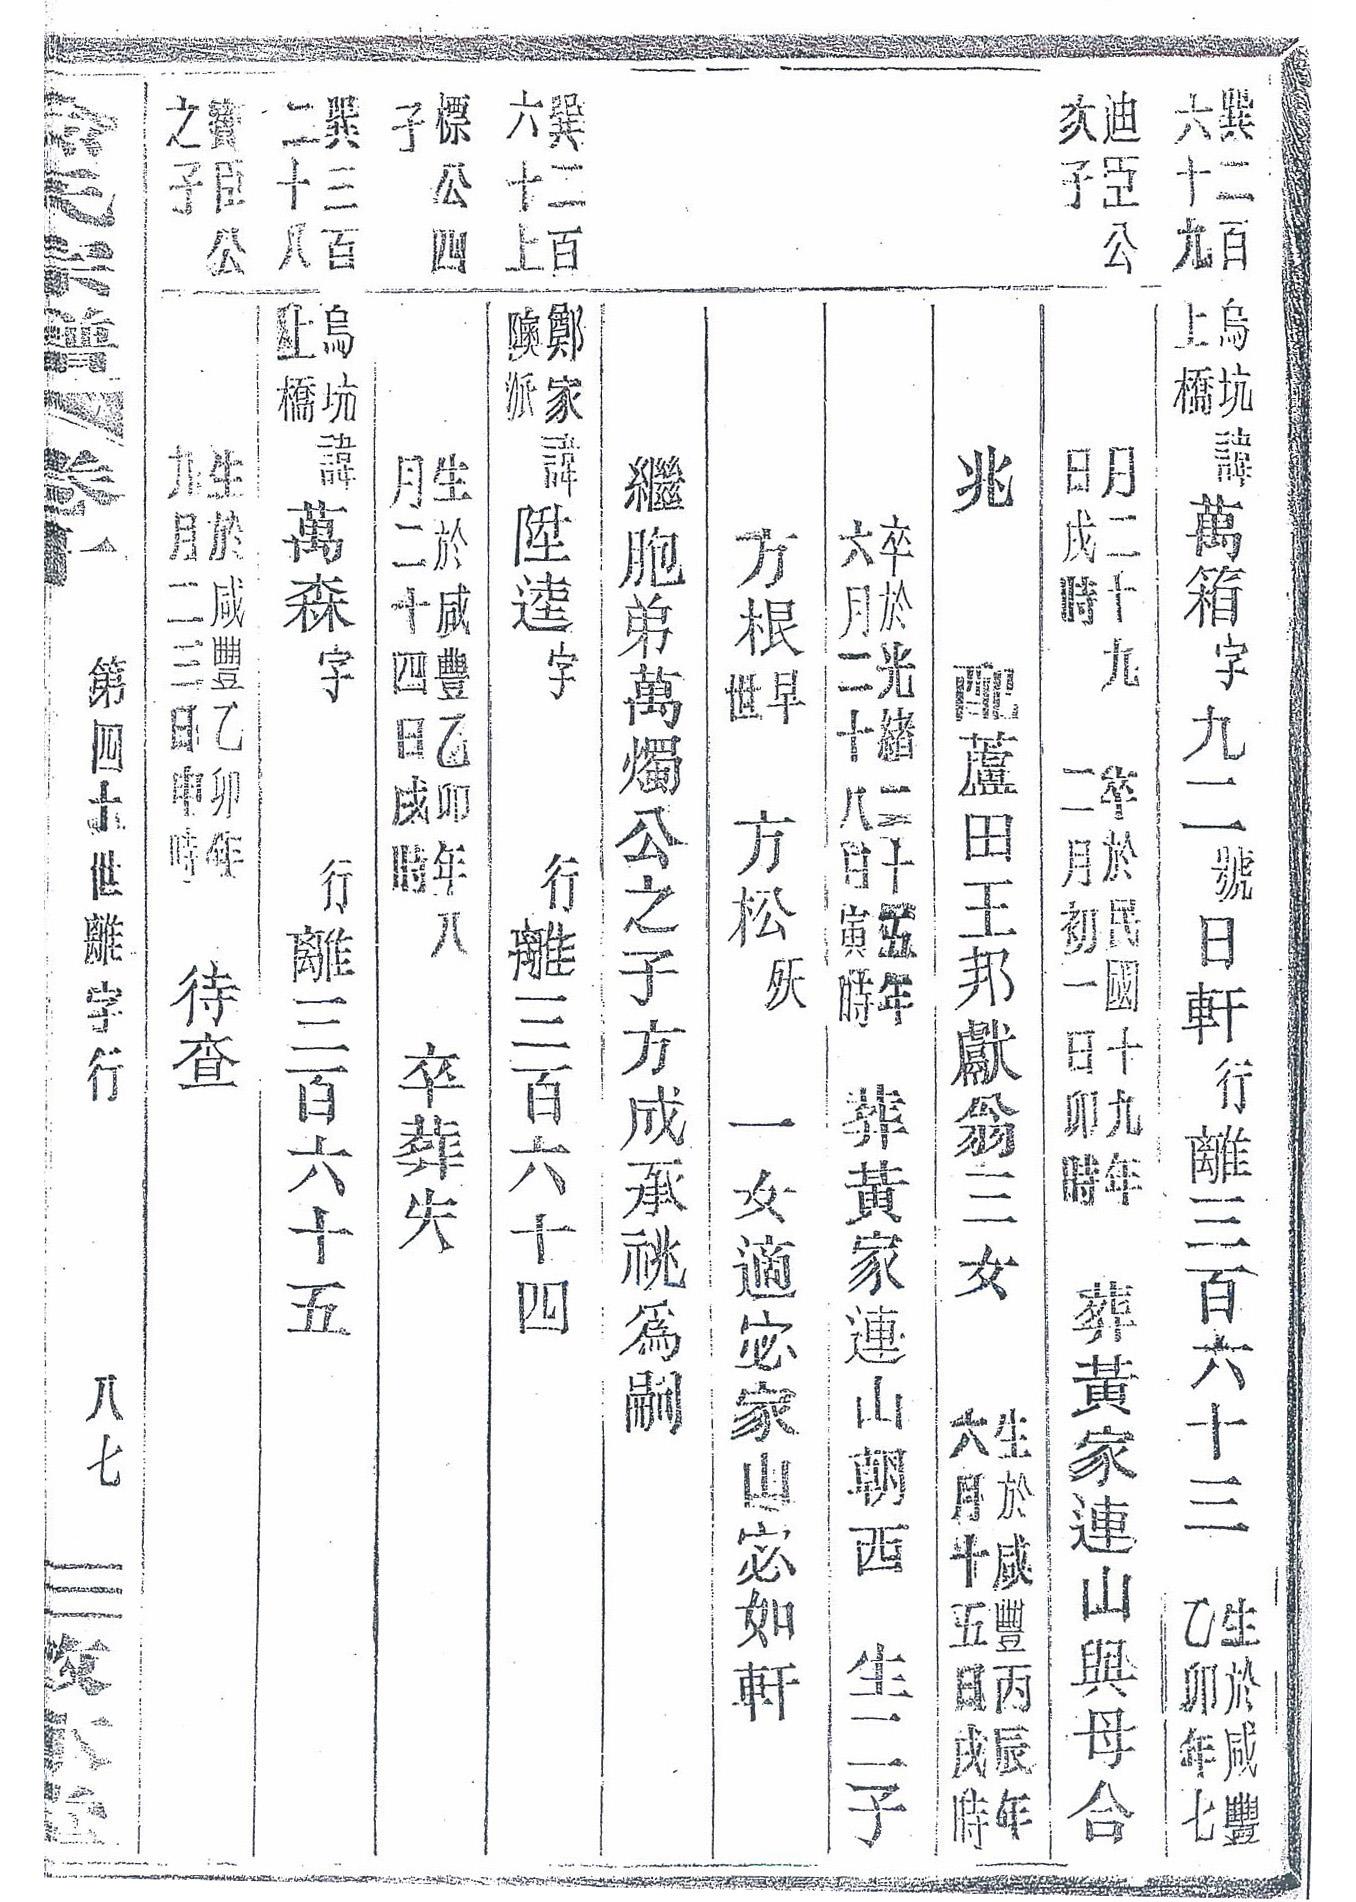 巽二百六十九
烏坑上橋諱萬箱字九二號日軒行離三百六十三生於咸豐乙卯年七
迪亞公次子
月二十九日戌時卒於民國十九年二月初一日卯時葬黃家連山與母合
兆配蘆田王邦獻翁三女生於咸豐丙辰年六月十五日戌時
卒於光緒二十五年六月二十八日寅時葬黃家連山朝西生二子
方根早世方松殀一女適宓家山宓如軒
繼胞弟萬燭公之子方成承祧爲嗣
巽二百六十上
鄭家隩派諱陞逵字行離三百六十四
標公四子
生於咸豐乙卯年八月二十四日戌時卒葬失
巽三百二十八
烏坑上橋諱萬森字行離三百六十五
贊臣公之子
生於咸豐乙卯年九月二三日申時待查
氏宗譜卷一
第四十世離字行
八七